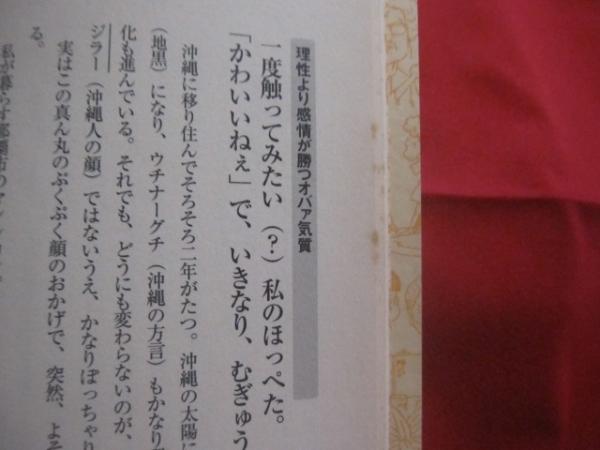 理性より感情が勝つオバァ気質
一度触ってみたい（？）私のほっぺた。
「かわいいねぇ」で、いきなり、むぎゅう
沖縄に移り住んでそろそろ二年がたつ。沖縄の太陽に
（地黒）になり、ウチナーグチ（沖縄の方言）もかなり
化も進んでいる。それでも、どうにも変わらないのが、
ジラー（沖縄人の顔）ではないうえ、かなりぽっちゃり
る。
実はこの真ん丸のぷくぷく顔のおかげで、突然、よそ
私が暮らす那覇市の